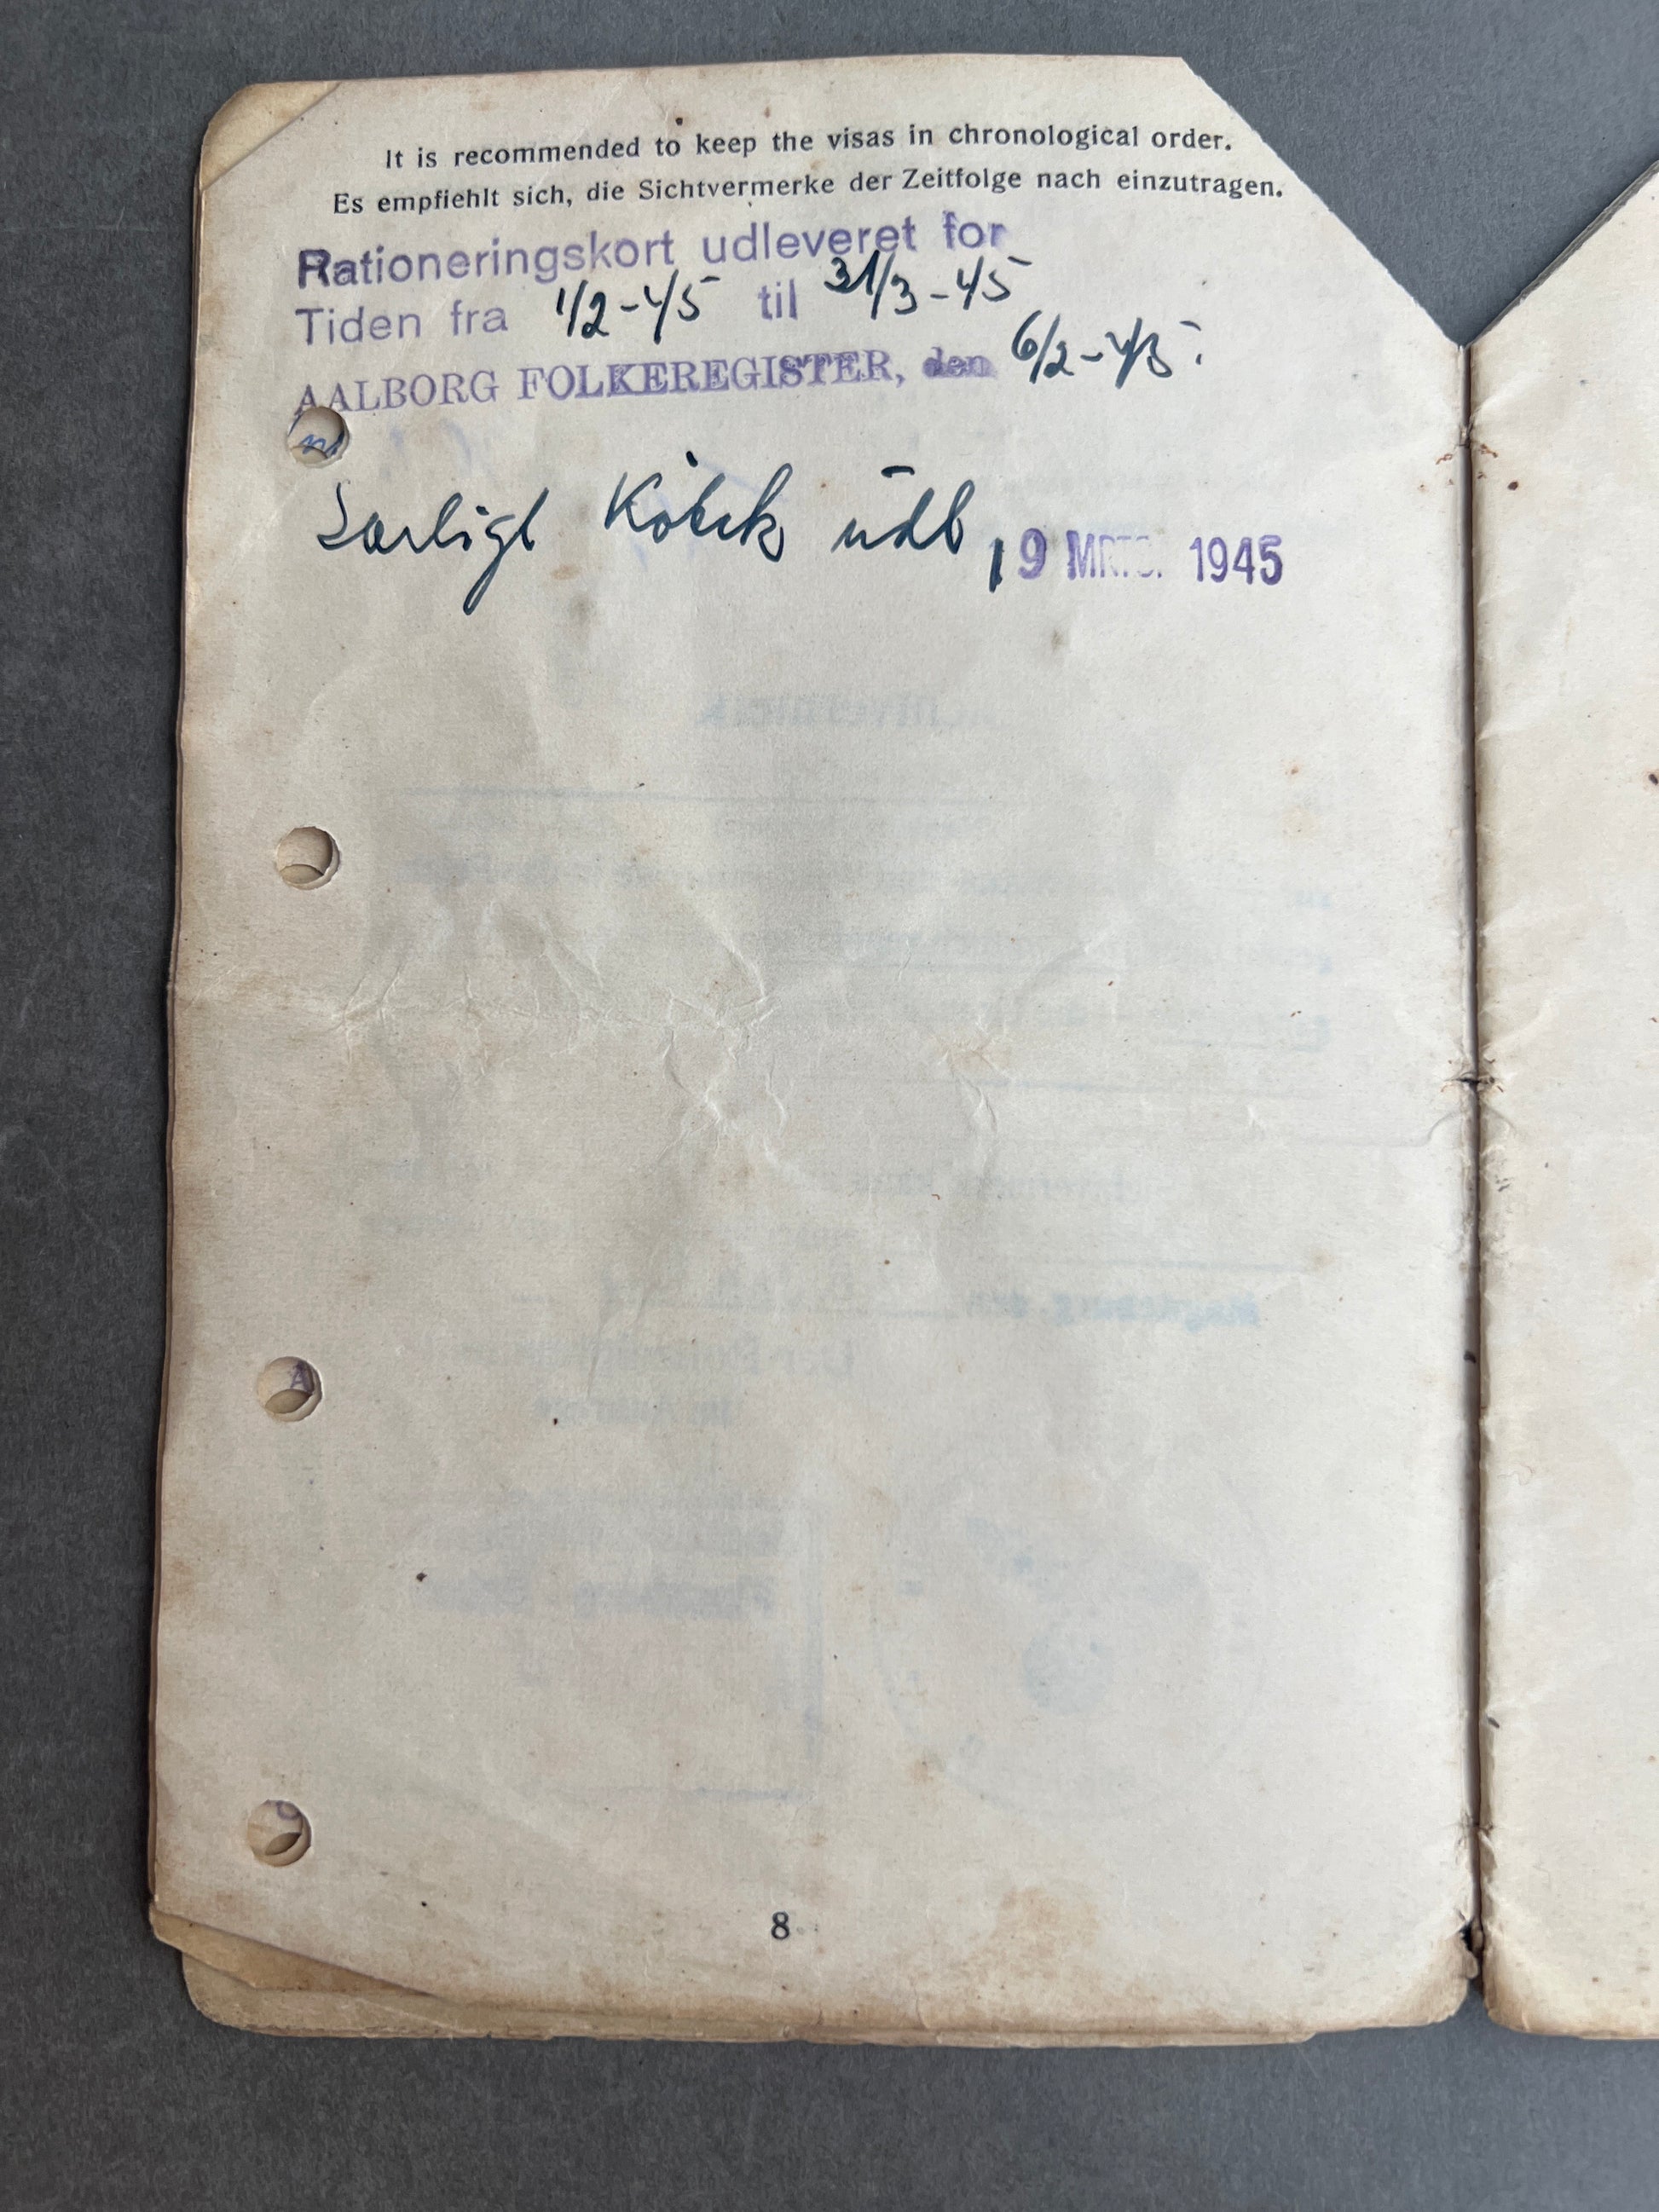 It is recommended to keep the visas in chronological order.
Es empfiehlt sich, die Sichtvermerke der Zeitfolge nach einzutragen.
Rationeringskort udleveret for
Tiden fra 1/2-45 til 31/3-45
AALBORG FOLKEREGISTER, den 6/2-45.
Særligt Købek udl, 9 MRTS. 1945
8